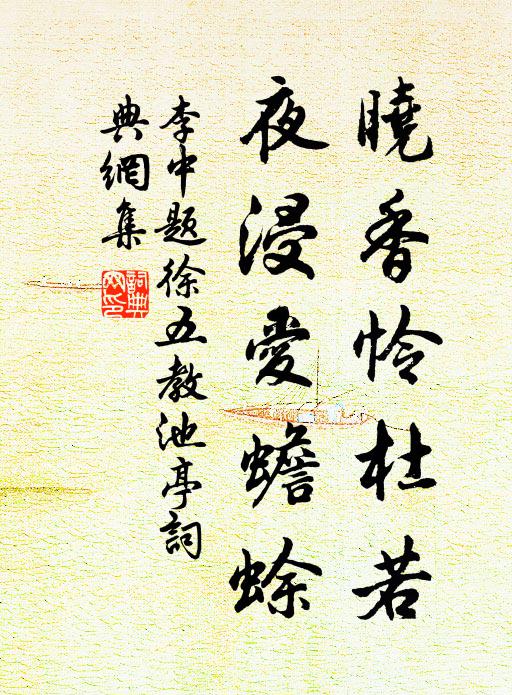 曉香怜杜若
夜浸愛蟾蜍
李中題徐五教池亭詞
典網集
詞典
网印